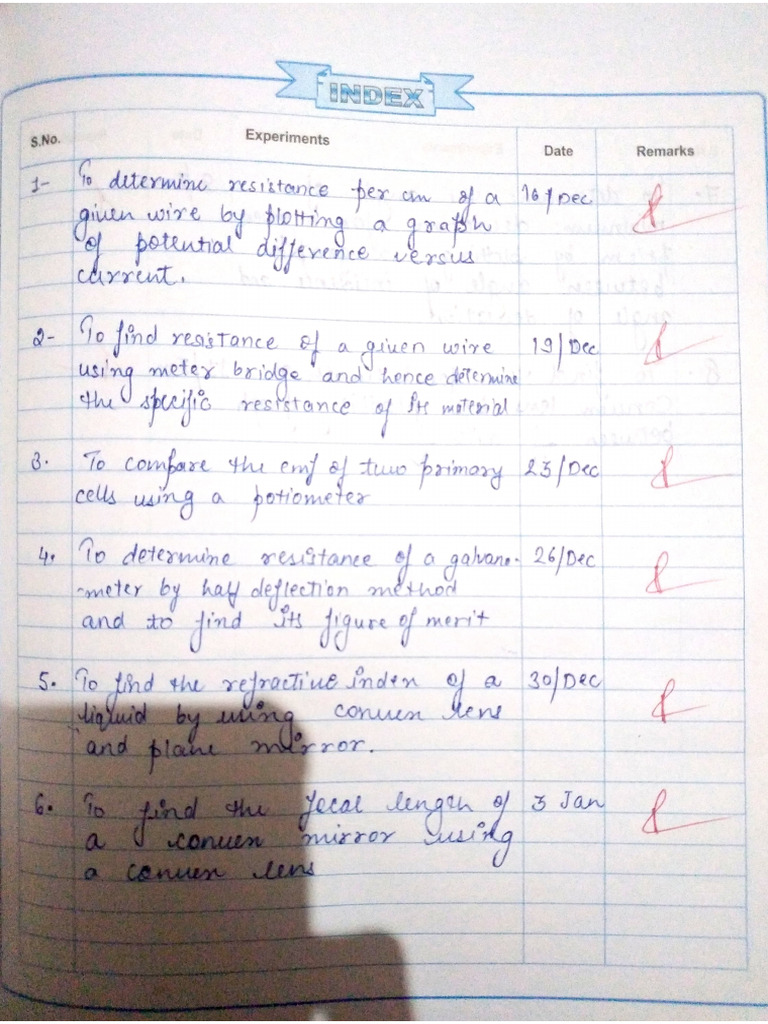 INDEX
S.No. Experiments Date Remarks
1- To determine resistance per cm of a 16/Dec
given wire by plotting a graph
of potential difference versus
current.
2- To find resistance of a given wire 19/Dec
using meter bridge and hence determine
the specific resistance of its material
3. To compare the emf of two primary 23/Dec
cells using a potiometer
4. To determine resistance of a galvano- 26/Dec
-meter by half deflection method
and to find its figure of merit
5. To find the refractive index of a 30/Dec
liquid by using convex lens
and plane mirror.
6. To find the focal length of 3 Jan
a convex mirror using
a convex lens